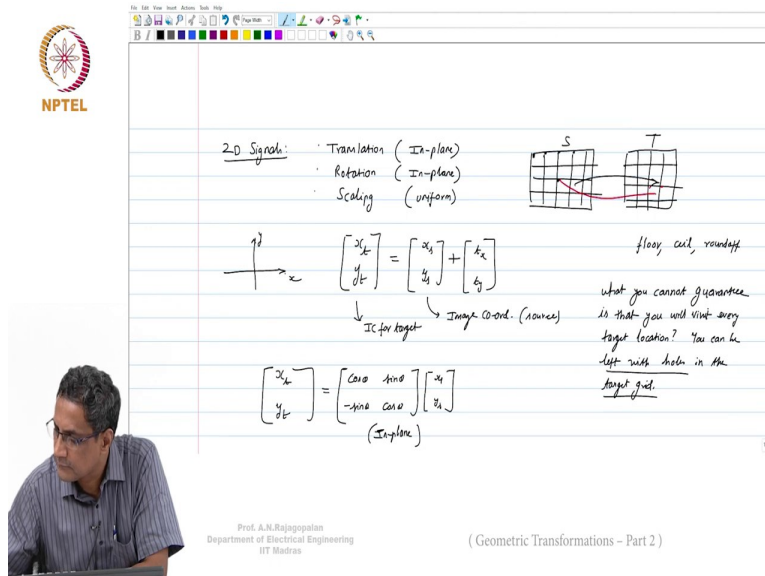 File Edit View Insert Actions Tools Help
Page Width
B I
NPTEL
2D Signals: · Translation (In-plane)
· Rotation (In-plane)
· Scaling (uniform)
S T
floor, ceil, roundoff
y
x
[x_t y_t] = [x_s y_s] + [t_x t_y]
IC for target
Image co-ord. (source)
What you cannot guarantee
is that you will visit every
target location? You can be
left with holes in the
target grid.
[x_t y_t] = [cosθ sinθ -sinθ cosθ] [x_s y_s]
(In-plane)
Prof. A.N.Rajagopalan
Department of Electrical Engineering
IIT Madras
( Geometric Transformations – Part 2 )